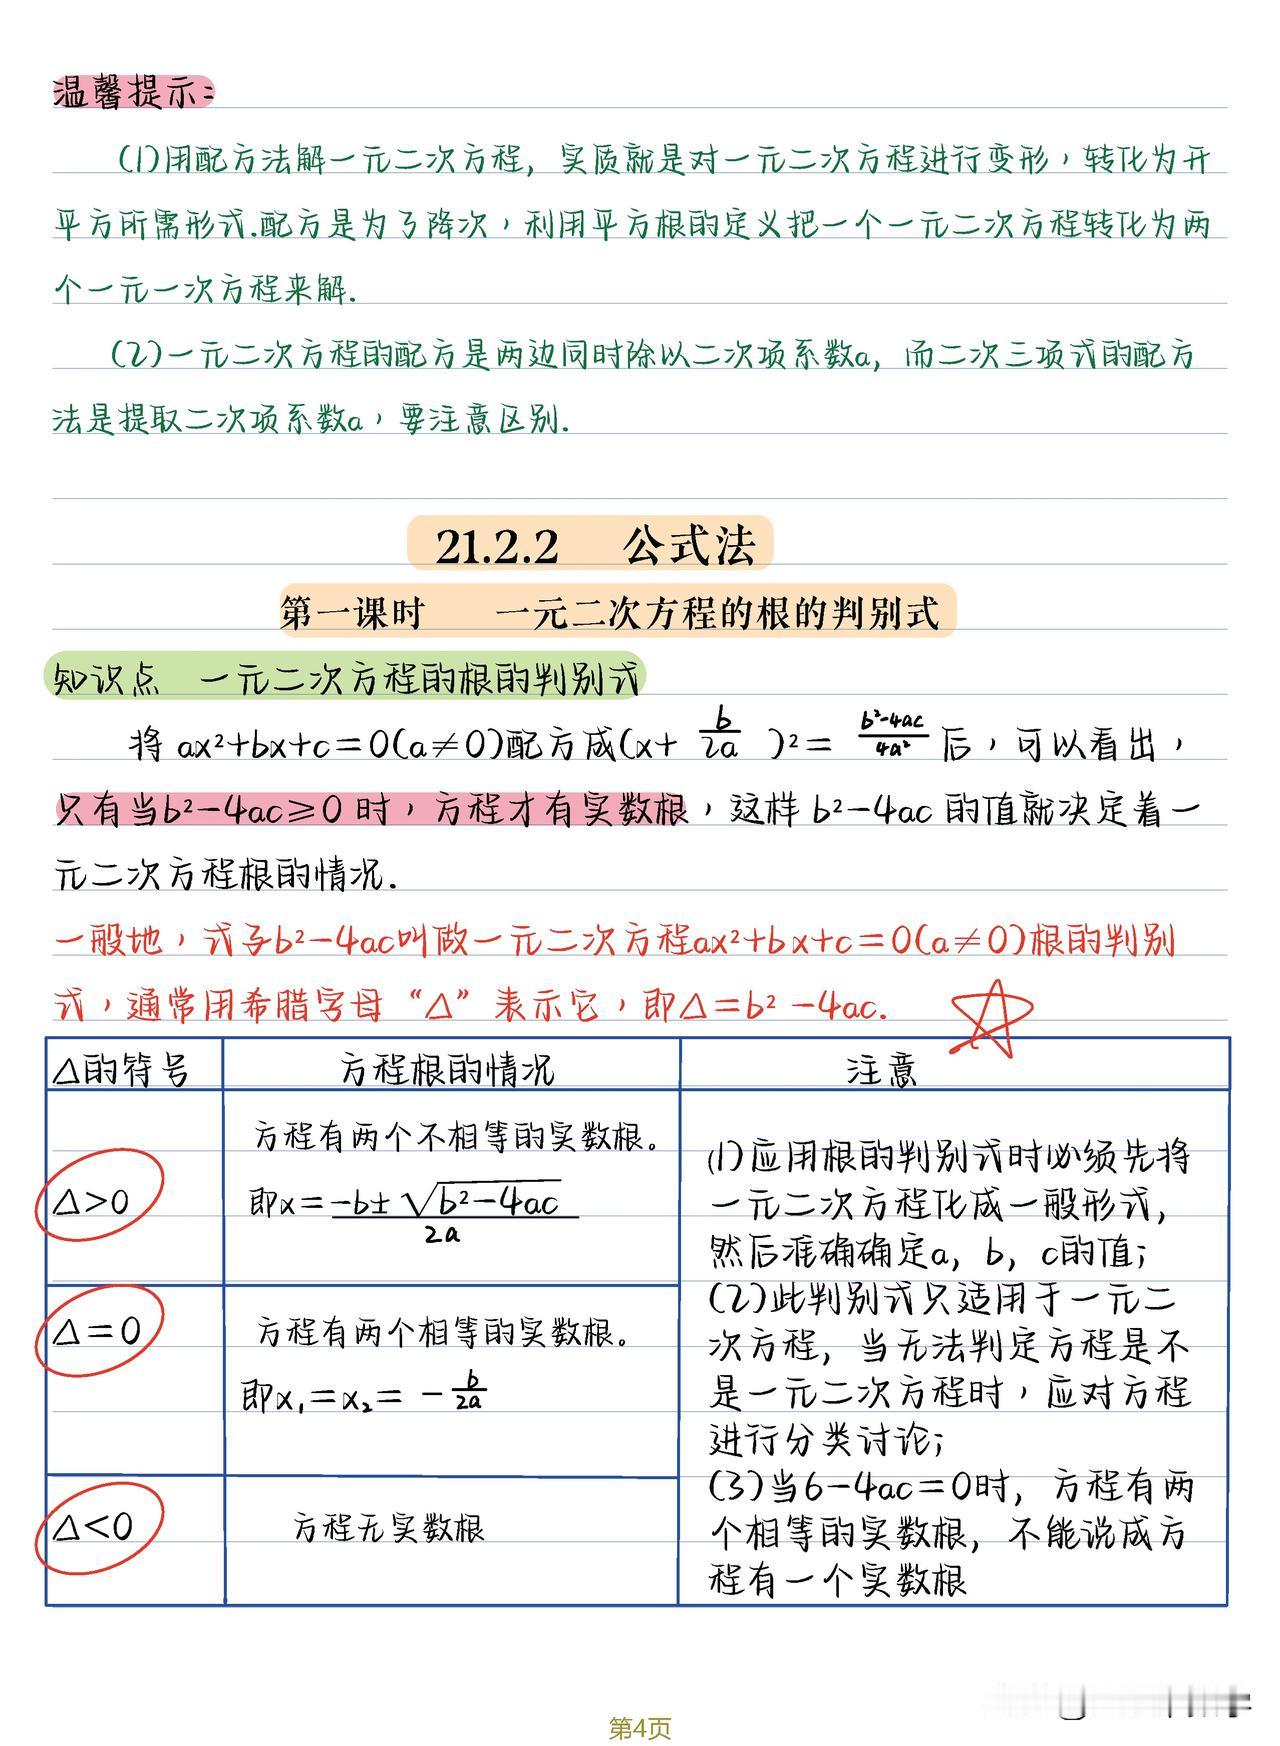 温馨提示:
(1)用配方法解一元二次方程, 实质就是对一元二次方程进行变形，转化为开
平方所需形式.配方是为了降次，利用平方根的定义把一个一元二次方程转化为两
个一元一次方程来解.
(2)一元二次方程的配方是两边同时除以二次项系数a, 而二次三项式的配方
法是提取二次项系数a，要注意区别.
21.2.2 公式法
第一课时 一元二次方程的根的判别式
知识点 一元二次方程的根的判别式
将 ax²+bx+c=0(a≠0)配方成(x+ b/2a )²= b²-4ac/4a² 后，可以看出，
只有当b²-4ac≥0 时，方程才有实数根，这样 b²-4ac 的值就决定着一
元二次方程根的情况.
一般地，式子b²-4ac叫做一元二次方程ax²+bx+c=0(a≠0)根的判别
式，通常用希腊字母“Δ”表示它，即Δ=b²-4ac.
Δ的符号 方程根的情况 注意
Δ>0
方程有两个不相等的实数根。
即x=-b±√b²-4ac/2a
Δ=0
方程有两个相等的实数根。
即x₁=x₂= -b/2a
Δ<0
方程无实数根
(1)应用根的判别式时必须先将
一元二次方程化成一般形式,
然后准确确定a, b, c的值;
(2)此判别式只适用于一元二
次方程, 当无法判定方程是不
是一元二次方程时，应对方程
进行分类讨论;
(3)当6-4ac=0时, 方程有两
个相等的实数根, 不能说成方
程有一个实数根
第4页